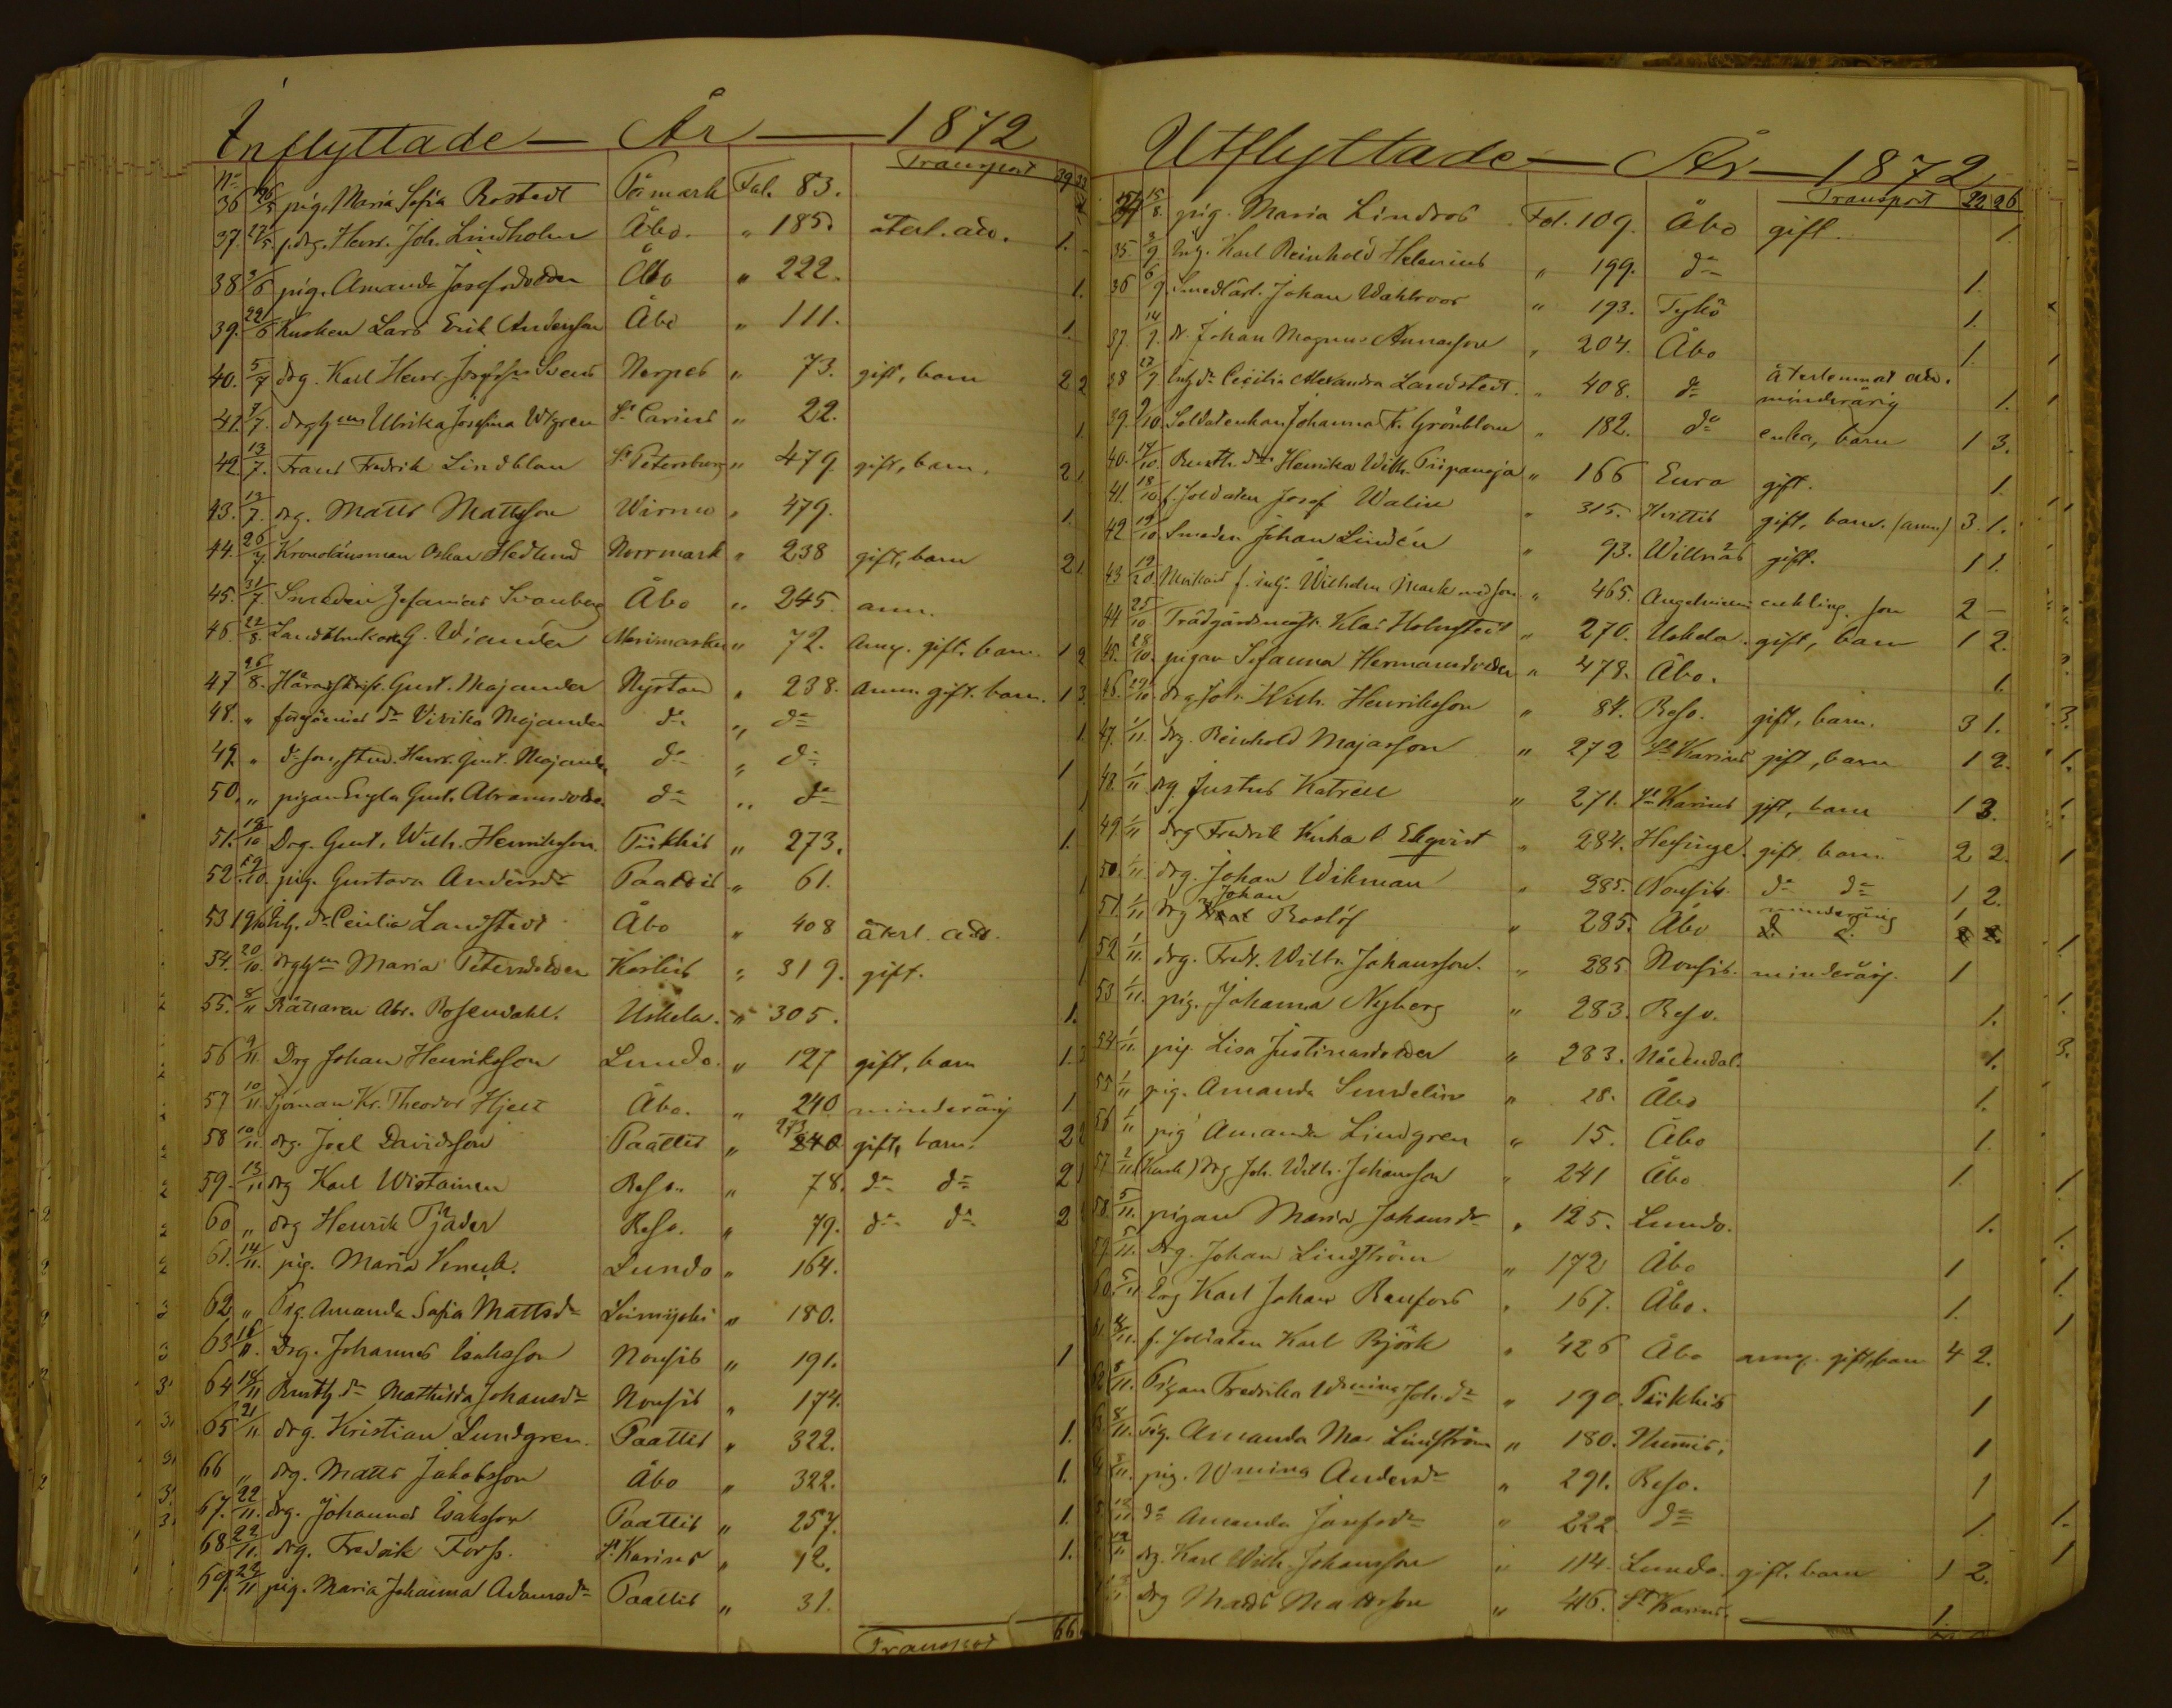 Inflyttade — År — 1872
No Transport 39 33
36 26/5 pig. Maria Sofia Rostedt Påmark Fol. 83.
37. 27/5 f. drg. Henr. Joh. Lindholm Åbo. " 185. återl. att. 1.
38 3/6 pig. Amanda Josefsdotter Åbo " 222. 1.
39. 22/6 Kusken Lars Erik Andersson Åbo " 111. 1.
40. 5/7 drg. Karl Henr. Josefss. Svens Nerpes " 73. gift, barn 2 2
41. 7/7. Ulrika Josefina Wigren St Carins " 22. 1
42 13/7. Frans Fredrik Lindblom St Petersburg " 479 gift, barn. 2 1
43. 13/7. drg. Matts Mattsson Wirmo " 479. 1.
44. 26/7 Kronolänsman Oskar Hedlund Norrmark " 238 gift, barn 2 1
45. 31/7. Smeden Zefanias Svanberg Åbo " 245. ann.
46. 22/8. G. Wiander Merimasku " 72. Ann. gift. barn. 1 2
47 26/8. Gust. Majander Nystad " 238. Ann. gift. barn. 1 3
48. " föregåendes dr Vivika Majander do " do 1
49 " do son, stud. Henr. Gust. Majander do " do 1
50. " pigan Gust. Abramsdotter do " do 1
51. 12/10 Drg. Gust. Wilh. Henriksson Piikkis " 273. 1.
52 19/10. pig. Gustava Andersdr Paattis " 61. 1
53 19/10 dr Cecilia Landstedt Åbo " 408 återl. att. 1
54. 20/10. Maria Petersdotter Korkis " 319. gift. 1
55. 8/11 Rättaren Abr. Rosendahl. Uskela. " 305. 1.
56 9/11 Drg Johan Henriksson Lundo. " 127 gift, barn 1. 3
57 10/11. Sjöman Kr. Theodor Hjelt Åbo. " 240 minderårig 1
58 10/11. drg. Joel Davidsson Paattis " 273 240 gift, barn. 2 2
59. 13/11 drg Karl Wistainen Reso. " 78. do do 2
60 " drg Henrik Tjäder Reso. " 79. do do 2
61. 14/11. pig. Maria Lundo " 164.
62 " Pig. Amanda Sofia Mattsdr " 180.
63 16/11. Drg. Johannes Isaksson Nousis " 191. 1
64 18/11 Rusth. dr Mathilda Johansdr Nousis " 174.
65 21/11 drg. Kristian Lundgren. Paattis " 322. 1.
66 " drg. Matts Jakobsson Åbo " 322. 1.
67. 22/11. drg. Johannes Isaksson Paattis " 257. 1.
68 22/11. drg. Fredrik Forss. St Karins " 12. 1.
69. 22/11 pig. Maria Johanna Adamsdr Paattis " 31.
Transport 66
Utflyttade — År — 1872
Transport 22 26
34 15/8. pig. Maria Lindros Fol. 109. Åbo gift. 1
35 3/9 Karl Reinhold Helenius " 199. do 1.
36 6/9 Johan Wahlroos " 193. Tykö 1.
37. 14/9. dr. Johan Magnus Annasson " 204. Åbo 1.
38 27/9 dr Cecilia Alexandra Landstedt. " 408. do återlemnat att. minderårig 1.
39. 9/10 Soldatenkan Johanna K. Grönblom " 182. do enka, barn 1 3.
40. 14/10. Rusth. dr Henrika Wilh. Piipanoja " 166 Eura gift. 1.
41. 18/10 f. soldaten Josef Walin " 315. Huittis gift, barn. (ann.) 3 1.
42. 19/10. Smeden Johan Lindén " 93. Willnäs gift. 1 1.
43 19/10. f. inh. Wilhelm " 465. Angelniemi enkling. son 2 —
44 25/10 Trädgårdsmäst. Klas Holmstedt " 270. Uskela. gift, barn 1 2.
45. 28/10. pigan Sefanna Hermansdotter " 478. Åbo. 1.
46. 29/10 drg Joh. Wilh. Henriksson " 84. Reso. gift, barn. 3 1.
47. 1/11. drg. Reinhold Majasson " 272 St Karins gift, barn 1 2.
48. 1/11. drg Justus Katrell " 271. St Karins gift, barn 1 3.
49 1/11 drg Fredrik Kuha l. Ekqvist " 284. Helsinge. gift. barn. 2 2.
50. 1/11. drg. Johan Wikman " 285. Nousis. do do 1 2.
51. 1/11 drg Johan Roslöf " 285. Åbo minderårig 1
52 1/11. drg. Fredr. Wilh. Johansson. " 285 Nousis. minderårig. 1
53 1/11. pig. Johanna Nyberg " 283. Reso. 1.
54 1/11. pig. Lisa Justinasdotter " 283. Nådendal. 1.
55 1/11 pig. Amanda Sundelin " 28. Åbo 1.
56 1/11 pig Amanda Lindgren " 15. Åbo 1.
57. 2/11 (Kusk) drg Joh. Wilh. Johansson " 241 Åbo 1.
58. 5/11. pigan Maria Johansdr " 125. Lundo. 1.
59. 5/11. Drg. Johan Lindström " 172 Åbo 1
60. 5/11 Drg Karl Johan Ranfors " 167. Åbo. 1.
61. 8/11. f. soldaten Karl Björk " 426 Åbo ann. gift, barn 4 2.
62 8/11. Pigan Fredrika Wmina Joh.dr " 190. Piikkis 1
63 8/11. Pig. Amanda Mar. Lindström " 180. Nummis. 1
11. pig. Wmina Andersdr " 291. Reso. 1
do Amanda Josefsdr " 222 do 1.
12/11 drg. Karl Wilh. Johansson " 114. Lundo. gift. barn 1 2.
drg Matts Mattsson " 46. St Karins. 1.